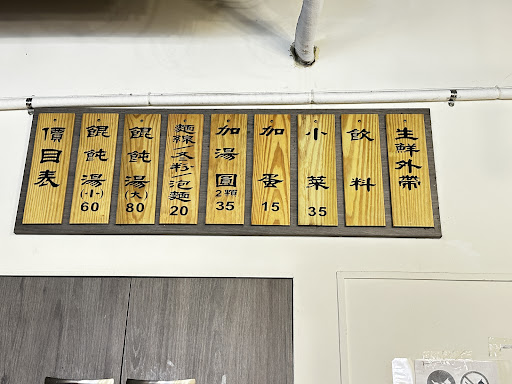 價目表
餛飩湯(小)60
餛飩湯(大)80
麵線/冬粉/泡麵20
加湯圓2顆35
加蛋15
小菜35
飲料
生鮮外帶